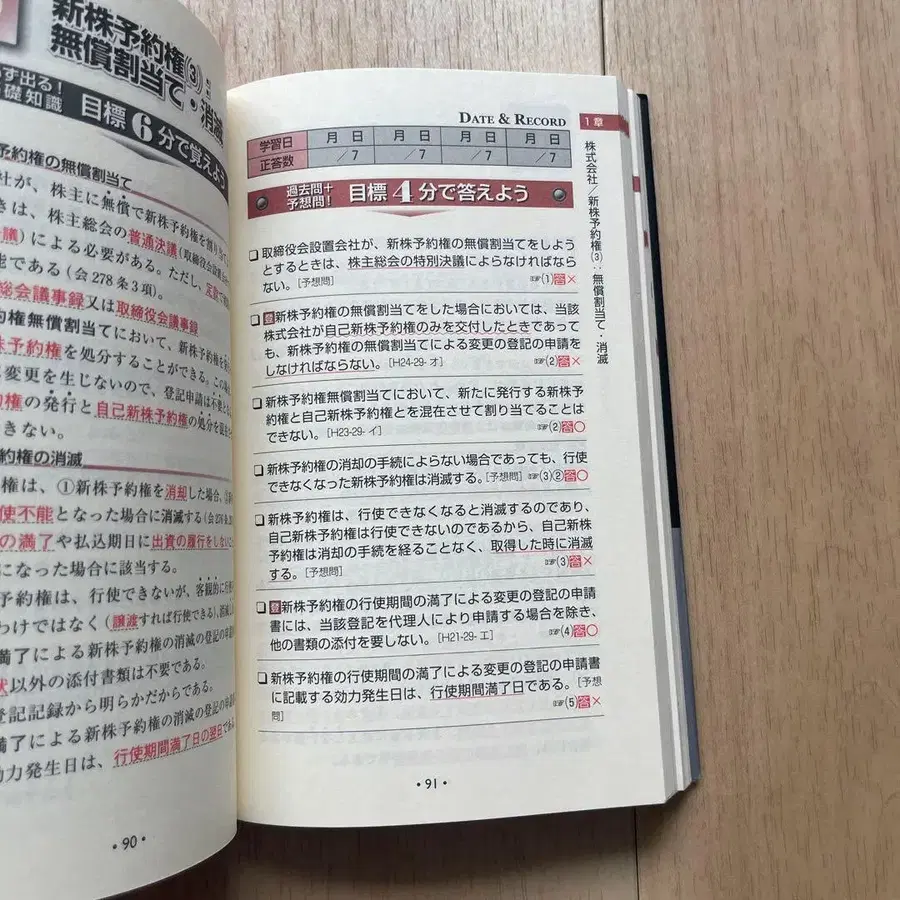 新株予約権(3):
無償割当て・消滅
ず出る!
礎知識
目標6分で覚えよう
予約権の無償割当て
社が、株主に無償で新株予約権を割り当て
きは、株主総会の普通決議(取締役会設
議)による必要がある。ただし、定款で
能である(会278条3項)。
総会議事録又は取締役会議事録
約権無償割当てにおいて、新株予約権を
株予約権を処分することができる。この
変更を生じないので、登記申請は不要と
約権の発行と自己新株予約権の処分を
きない。
約権の消滅
権は、①新株予約権を消却した場合、
使不能となった場合に消滅する(会
の満了や払込期日に出資の履行をしない
になった場合に該当する。
予約権は、行使できないが、客観的に行使
わけではなく(譲渡すれば行使できる)、消滅し
満了による新株予約権の消滅の登記の申
状以外の添付書類は不要である。
登記記録から明らかだからである。
満了による新株予約権の消滅の登記の申
効力発生日は、行使期間満了日の翌日であ
・90・
DATE & RECORD
学習日 月 日 月 日 月 日 月 日
正答数 /7 /7 /7 /7
過去問+
予想問!
目標4分で答えよう
□ 取締役会設置会社が、新株予約権の無償割当てをしよう
とするときは、株主総会の特別決議によらなければなら
ない。[予想問] ☞(1)答×
□ 登新株予約権の無償割当てをした場合においては、当該
株式会社が自己新株予約権のみを交付したときであって
も、新株予約権の無償割当てによる変更の登記の申請を
しなければならない。[H24-29-オ] ☞(2)答×
□ 新株予約権無償割当てにおいて、新たに発行する新株予
約権と自己新株予約権とを混在させて割り当てることは
できない。[H23-29-イ] ☞(2)答○
□ 新株予約権の消却の手続によらない場合であっても、行使
できなくなった新株予約権は消滅する。[予想問] ☞(3)②答○
□ 新株予約権は、行使できなくなると消滅するのであり、
自己新株予約権は行使できないのであるから、自己新株
予約権は消却の手続を経ることなく、取得した時に消滅
する。[予想問] ☞(3)答×
□ 登新株予約権の行使期間の満了による変更の登記の申請
書には、当該登記を代理人により申請する場合を除き、
他の書類の添付を要しない。[H21-29-エ] ☞(4)答○
□ 新株予約権の行使期間の満了による変更の登記の申請書
に記載する効力発生日は、行使期間満了日である。[予想
問] ☞(5)答×
・91・
1章
株式会社/新株予約権(3):無償割当て・消滅